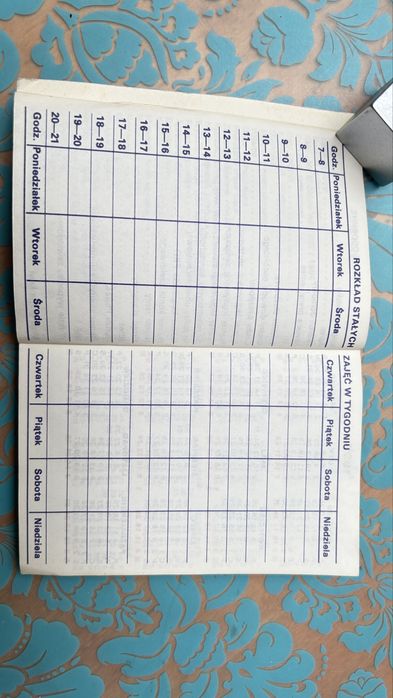 ROZKŁAD STAŁYCH
ZAJĘĆ W TYGODNIU
Godz. Poniedziałek Wtorek Środa Czwartek Piątek Sobota Niedziela
7—8
8—9
9—10
10—11
11—12
12—13
13—14
14—15
15—16
16—17
17—18
18—19
19—20
20—21
Godz. Poniedziałek Wtorek Środa Czwartek Piątek Sobota Niedziela